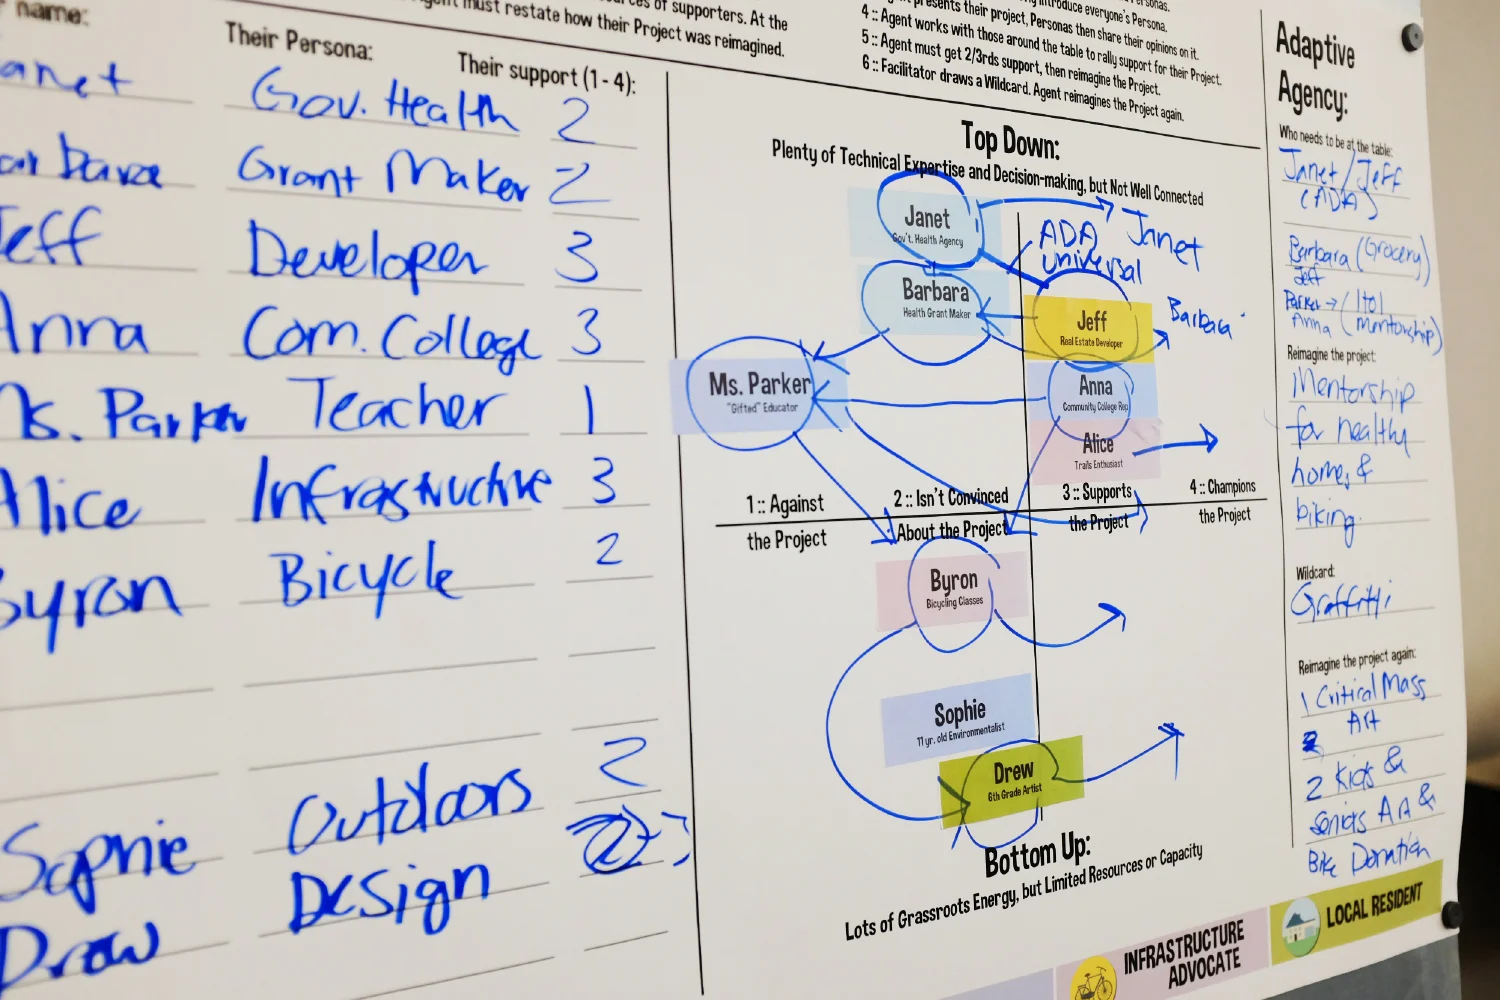 name:
Their Persona:
Their support (1 - 4):
anet Gov. Health 2
Grant Maker 2
Jeff Developer 3
Anna Com. College 3
Ms. Parker Teacher 1
Alice Infrastructure 3
Byron Bicycle 2
Sophie Outdoors 2
Drew Design
of supporters. At the
must restate how their Project was reimagined.
introduce everyone's Persona.
presents their project, Personas then share their opinions on it.
4 :: Agent works with those around the table to rally support for their Project.
5 :: Agent must get 2/3rds support, then reimagine the Project.
6 :: Facilitator draws a Wildcard. Agent reimagines the Project again.
Top Down:
Plenty of Technical Expertise and Decision-making, but Not Well Connected
Janet
Gov't. Health Agency
ADA
Universal
Janet
Barbara
Health Grant Maker
Jeff
Real Estate Developer
Barbara
Ms. Parker
"Gifted" Educator
Anna
Community College Rep
Alice
Trails Enthusiast
1 :: Against
the Project
2 :: Isn't Convinced
About the Project
3 :: Supports
the Project
4 :: Champions
the Project
Byron
Bicycling Classes
Sophie
11 yr. old Environmentalist
Drew
6th Grade Artist
Bottom Up:
Lots of Grassroots Energy, but Limited Resources or Capacity
Adaptive
Agency:
Who needs to be at the table:
Janet/Jeff
(ADA)
Barbara (Grocery)
Jeff
Parker → / 1to1
Anna (mentorship)
Reimagine the project:
Mentorship
for healthy
home, &
biking.
Wildcard:
Graffiti
Reimagine the project again:
1 Critical Mass
Art
2 Kids &
Art &
Bike Donation
INFRASTRUCTURE
ADVOCATE
LOCAL RESIDENT